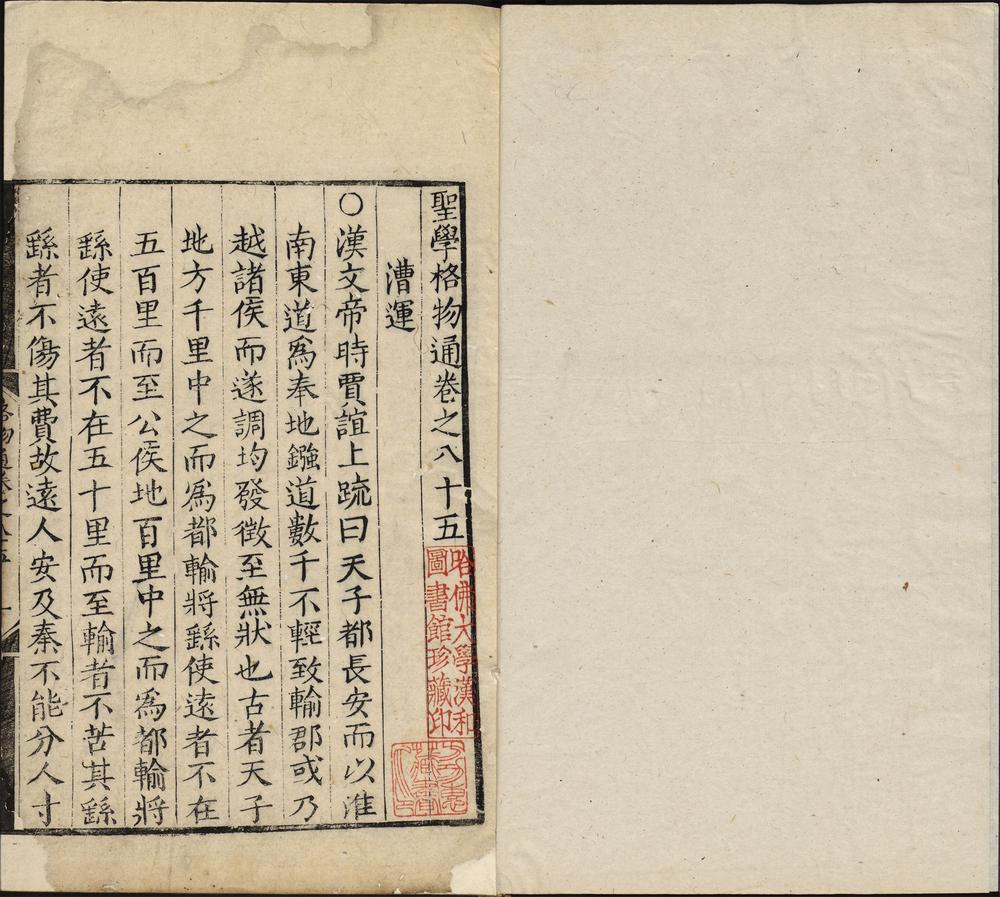 聖學格物通卷之八十五
漕運
〇漢文帝時賈誼上䟽曰天子都長安而以淮
南東道爲奉地鏹道數千不輕致輸郡或乃
越諸侯而遂調均發徵至無狀也古者天子
地方千里中之而爲都輸將繇使遠者不在
五百里而至公侯地百里中之而爲都輸將
繇使遠者不在五十里而至輸者不苦其繇
繇者不傷其費故遠人安及秦不能分人寸
格物通卷之八十五
一
哈佛大學漢和
圖書館珍藏印